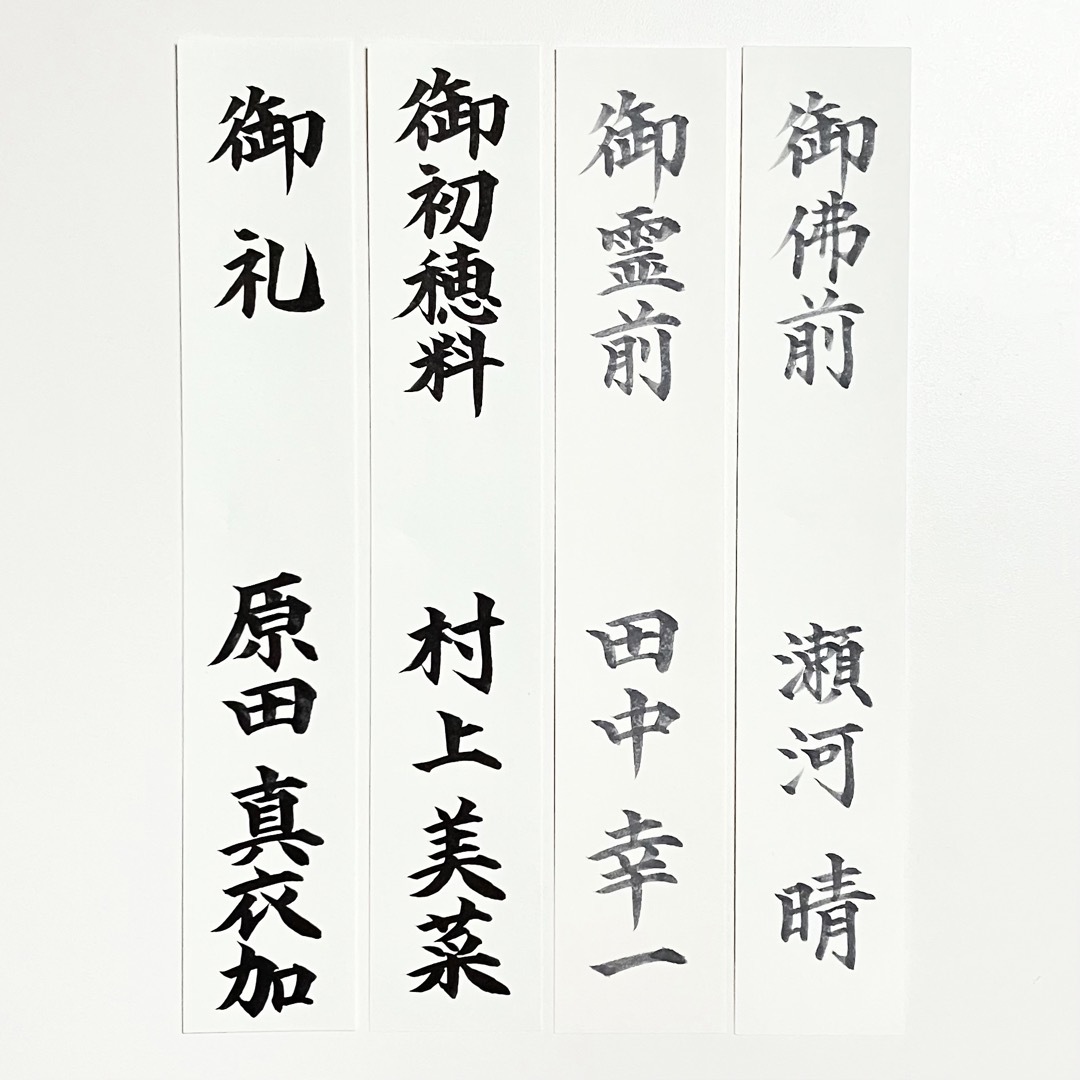 御佛前 瀬河 晴
御霊前 田中 幸一
御初穂料 村上 美菜
御礼 原田 真衣加